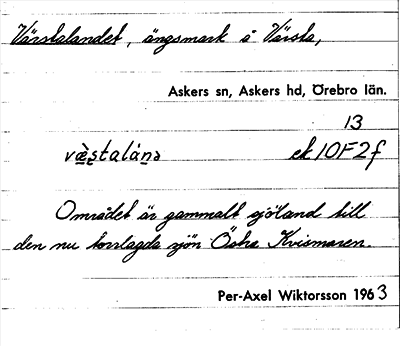 Värstalandet, ängsmark å Värsta,
Askers sn, Askers hd, Örebro län.
13
væ̀ṣtalánə ek 10F2f
Området är gammalt sjöland till
den nu torrlagda sjön Östra Kvismaren.
Per-Axel Wiktorsson 1963